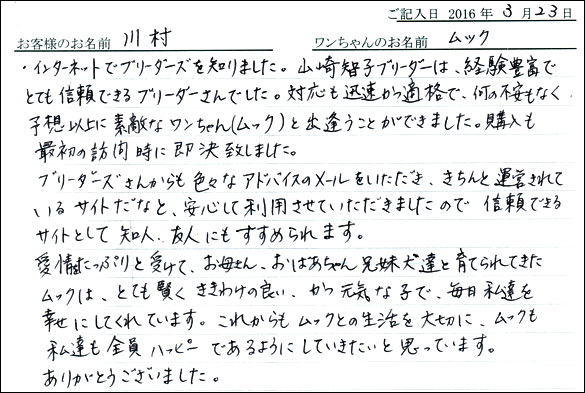 ご記入日 2016年 3月23日
お客様のお名前 川村 ワンちゃんのお名前 ムック
・インターネットでブリーダーズを知りました。山崎智子ブリーダーは、経験豊富で
とても信頼できるブリーダーさんでした。対応も迅速かつ適格で、何の不安もなく
予想以上に素敵なワンちゃん(ムック)と出逢うことができました。購入も
最初の訪問時に即決致しました。
ブリーダーズさんからも色々なアドバイスのメールをいただき、きちんと運営されて
いるサイトだなと、安心して利用させていただきましたので信頼できる
サイトとして知人、友人にもすすめられます。
愛情たっぷりと受けて、お母さん、おばあちゃん兄妹犬達と育てられてきた
ムックは、とても賢くききわけの良い、かつ元気な子で、毎日私達を
幸せにしてくれています。これからもムックとの生活を大切に、ムックも
私達も全員ハッピーであるようにしていきたいと思っています。
ありがとうございました。